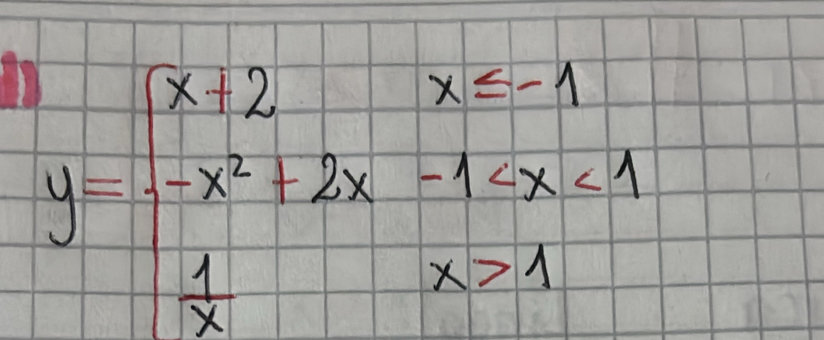 x+2 x≤-1
y= -x²+2x -1<x<1
1/x x>1